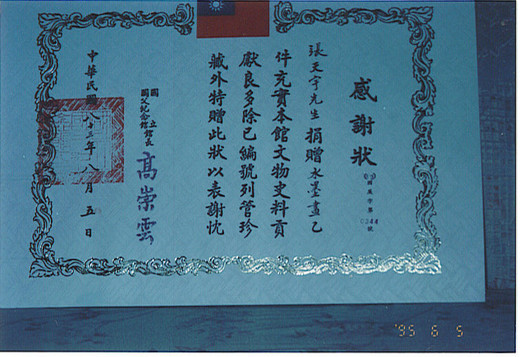 感謝狀
字第
0244號
張天宇先生捐贈水墨畫乙
件充實本館文物史料貢
獻良多除已編號列管珍
藏外特贈此狀以表謝忱
國立
國父紀念館館長
高崇雲
中華民國八十三年八月五日
'95 6 5